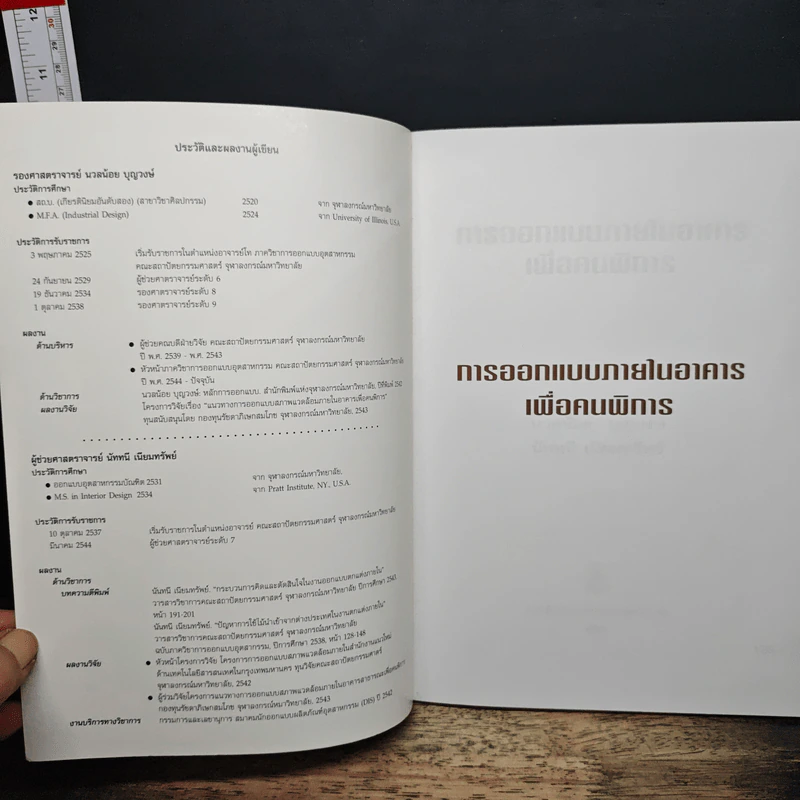 12
30
29
28
11
27
26
ประวัติและผลงานผู้เขียน
รองศาสตราจารย์ นวลน้อย บุญวงษ์
ประวัติการศึกษา
● สถ.บ. (เกียรตินิยมอันดับสอง) (สาขาวิชาศิลปกรรม) 2520 จาก จุฬาลงกรณ์มหาวิทยาลัย
● M.F.A. (Industrial Design) 2524 จาก University of Illinois, U.S.A.
ประวัติการรับราชการ
3 พฤษภาคม 2525 เริ่มรับราชการในตำแหน่งอาจารย์โท ภาควิชาการออกแบบอุตสาหกรรม
คณะสถาปัตยกรรมศาสตร์ จุฬาลงกรณ์มหาวิทยาลัย
24 กันยายน 2529 ผู้ช่วยศาสตราจารย์ระดับ 6
19 ธันวาคม 2534 รองศาสตราจารย์ระดับ 8
1 ตุลาคม 2538 รองศาสตราจารย์ระดับ 9
ผลงาน
ด้านบริหาร ● ผู้ช่วยคณบดีฝ่ายวิจัย คณะสถาปัตยกรรมศาสตร์ จุฬาลงกรณ์มหาวิทยาลัย
ปี พ.ศ. 2539 - พ.ศ. 2543
● หัวหน้าภาควิชาการออกแบบอุตสาหกรรม คณะสถาปัตยกรรมศาสตร์ จุฬาลงกรณ์มหาวิทยาลัย
ปี พ.ศ. 2544 - ปัจจุบัน
ด้านวิชาการ นวลน้อย บุญวงษ์. หลักการออกแบบ. สำนักพิมพ์แห่งจุฬาลงกรณ์มหาวิทยาลัย, ปีที่พิมพ์ 2542
ผลงานวิจัย โครงการวิจัยเรื่อง "แนวทางการออกแบบสภาพแวดล้อมภายในอาคารเพื่อคนพิการ"
ทุนสนับสนุนโดย กองทุนรัชดาภิเษกสมโภช จุฬาลงกรณ์มหาวิทยาลัย, 2543
ผู้ช่วยศาสตราจารย์ นัททนี เนียมทรัพย์
ประวัติการศึกษา
● ออกแบบอุตสาหกรรมบัณฑิต 2531 จาก จุฬาลงกรณ์มหาวิทยาลัย,
● M.S. in Interior Design 2534 จาก Pratt Institute, NY, U.S.A.
ประวัติการรับราชการ
10 ตุลาคม 2537 เริ่มรับราชการในตำแหน่งอาจารย์ คณะสถาปัตยกรรมศาสตร์ จุฬาลงกรณ์มหาวิทยาลัย
มีนาคม 2544 ผู้ช่วยศาสตราจารย์ระดับ 7
ผลงาน
ด้านวิชาการ นันทนี เนียมทรัพย์. "กระบวนการคิดและตัดสินใจในงานออกแบบตกแต่งภายใน"
บทความตีพิมพ์ วารสารวิชาการคณะสถาปัตยกรรมศาสตร์ จุฬาลงกรณ์มหาวิทยาลัย ปีการศึกษา 2543,
หน้า 191-201
นันทนี เนียมทรัพย์. "ปัญหาการใช้ไม้นำเข้าจากต่างประเทศในงานตกแต่งภายใน"
วารสารวิชาการคณะสถาปัตยกรรมศาสตร์ จุฬาลงกรณ์มหาวิทยาลัย
ฉบับภาควิชาการออกแบบอุตสาหกรรม, ปีการศึกษา 2538, หน้า 128-148
ผลงานวิจัย ● หัวหน้าโครงการวิจัย โครงการการออกแบบสภาพแวดล้อมภายในสำนักงานแนวใหม่
ด้านเทคโนโลยีสารสนเทศในกรุงเทพมหานคร ทุนวิจัยคณะสถาปัตยกรรมศาสตร์
จุฬาลงกรณ์มหาวิทยาลัย, 2542
● ผู้ร่วมวิจัยโครงการแนวทางการออกแบบสภาพแวดล้อมภายในอาคารสาธารณะเพื่อคนพิการ
กองทุนรัชดาภิเษกสมโภช จุฬาลงกรณ์มหาวิทยาลัย, 2543
งานบริการทางวิชาการ กรรมการและเลขานุการ สมาคมนักออกแบบผลิตภัณฑ์อุตสาหกรรม (DIS) ปี 2542
การออกแบบภายในอาคาร
เพื่อคนพิการ